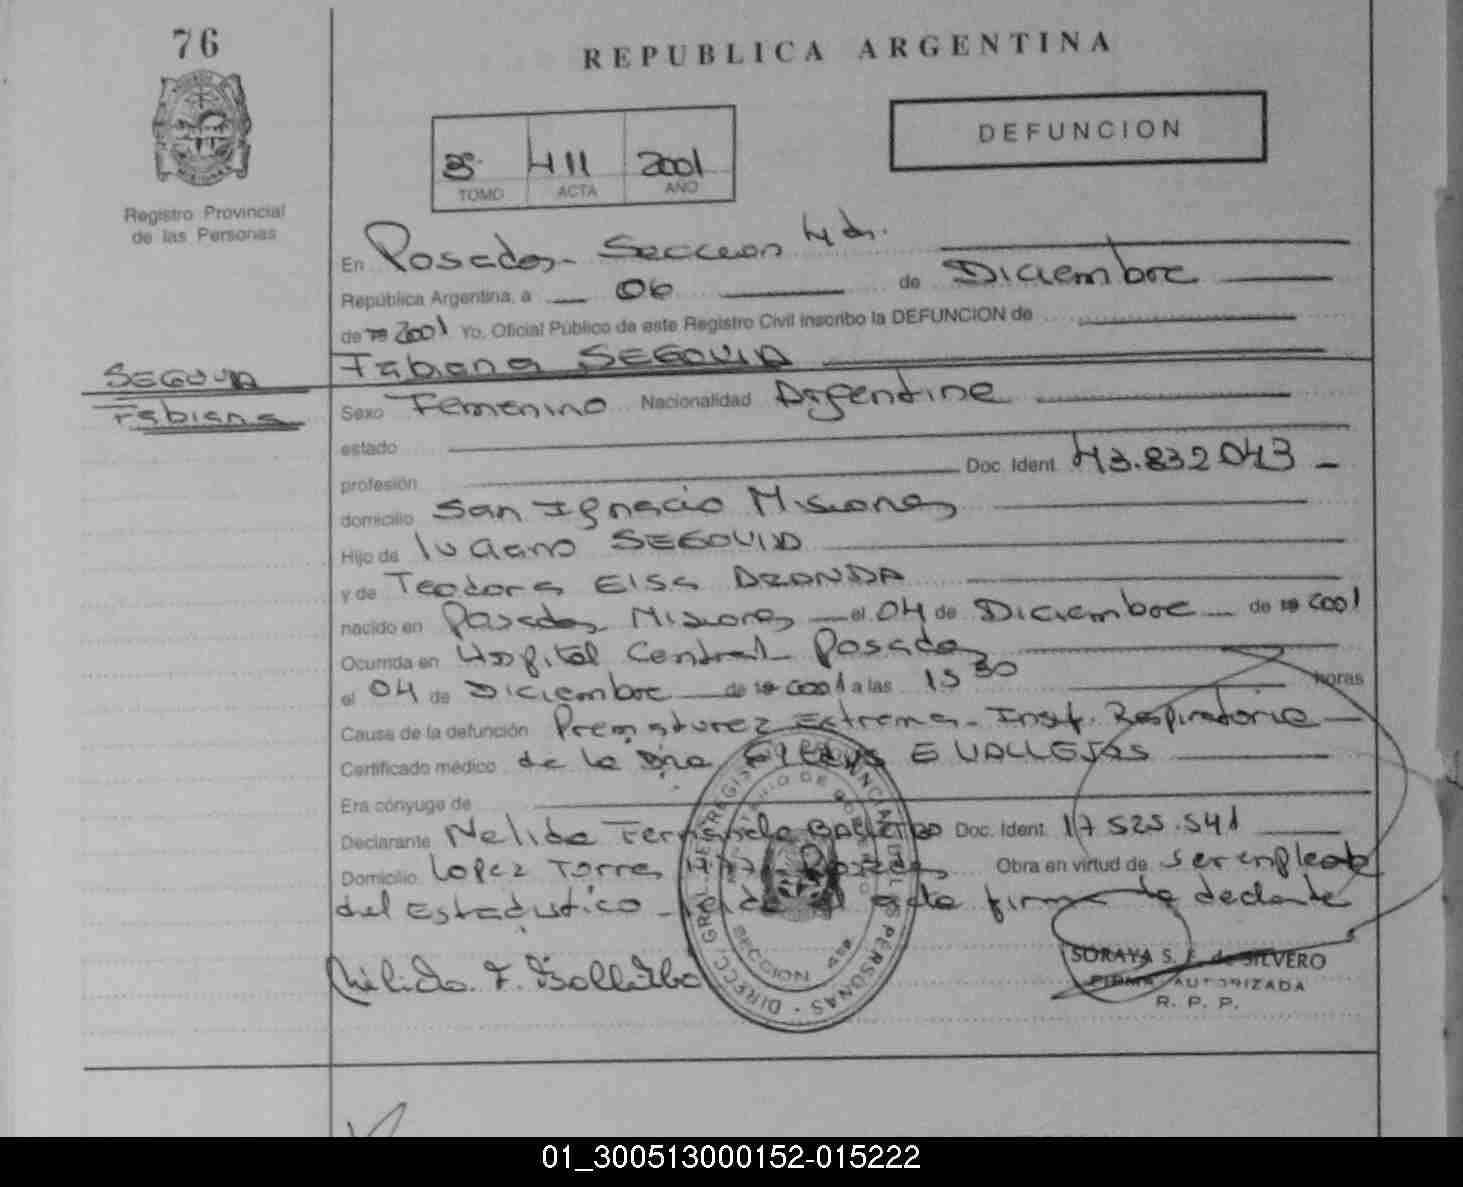 76
REPUBLICA ARGENTINA
DEFUNCION
3º 411 2001
TOMO ACTA AÑO
Registro Provincial
de las Personas
En Posadas - Seccion 4ta.
República Argentina, a 06 de Diciembre
de 19 2001 Yo, Oficial Público de este Registro Civil inscribo la DEFUNCION de
Fabiana SEGOVIA
SEGOVIA
Fabiana
Sexo Femenino Nacionalidad Argentina
estado
profesión Doc. Ident. 43.832043
domicilio San Ignacio Misiones
Hijo de luciano SEGOVIA
y de Teodora Elsa ARANDA
nacido en Posadas Misiones el 04 de Diciembre de 19 2001
Ocurrida en Hospital Central Posadas
el 04 de Diciembre de 19 2001 a las 15 30 horas
Causa de la defunción Prematurez Extrema - Insuf. Respiratoria
Certificado médico de la Dra E VALLEJOS
Era cónyuge de
Declarante Nelida Fernanda Doc. Ident. 17 525.541
Domicilio Lopez Torres Posadas Obra en virtud de ser empleada
del Estadistico - leida el acta firma la declarante
Nélida F.
DIRECC. GRAL. DEL REGISTRO PROVINCIAL DE LAS PERSONAS
MINISTERIO DE GOBIERNO
SECCION 4ta
SORAYA S. F. de SILVERO
FIRMA AUTORIZADA
R. P. P.
01_300513000152-015222